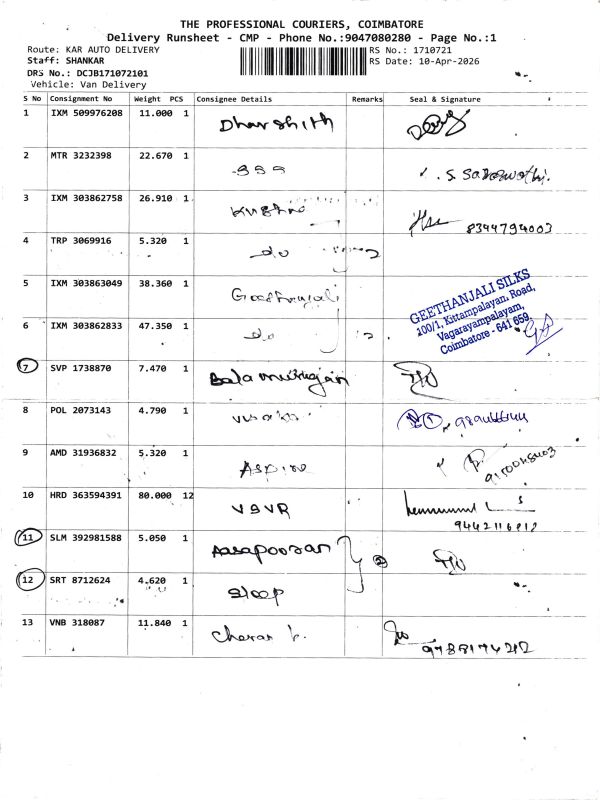 THE PROFESSIONAL COURIERS, COIMBATORE
Delivery Runsheet - CMP - Phone No.:9047080280 - Page No.:1
Route: KAR AUTO DELIVERY RS No.: 1710721
Staff: SHANKAR RS Date: 10-Apr-2026
DRS No.: DCJB171072101
Vehicle: Van Delivery
S No Consignment No Weight PCS Consignee Details Remarks Seal & Signature
1 IXM 509976208 11.000 1 Dharshith
2 MTR 3232398 22.670 1 999
3 IXM 303862758 26.910 1 8344794003
4 TRP 3069916 5.320 1 do
5 IXM 303863049 38.360 1 Geethanjali
GEETHANJALI SILKS
100/1, Kittampalayan, Road,
Vagarayampalayam,
Coimbatore - 641 659.
6 IXM 303862833 47.350 1 do
7 SVP 1738870 7.470 1 Balamurugan
8 POL 2073143 4.790 1
9 AMD 31936832 5.320 1 Aspire
10 HRD 363594391 80.000 12 VGVR
11 SLM 392981588 5.050 1 2
12 SRT 8712624 4.620 1
13 VNB 318087 11.840 1 Cheran